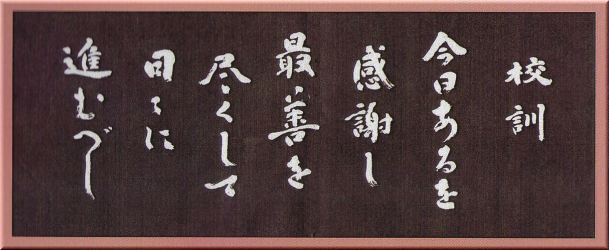 校訓
今日あるを
感謝し
最善を
尽くして
日々に
進むべし